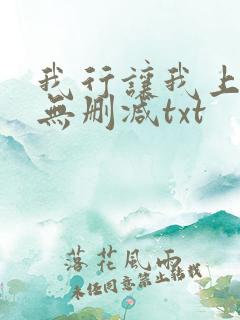 我行讓我上
無删减txt
落花風雨
未经同意禁止转载